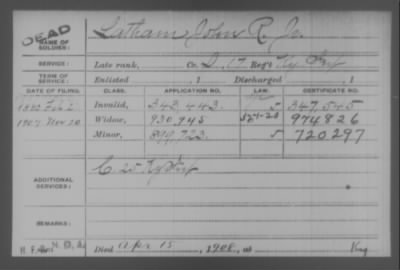 DEAD
NAME OF SOLDIER: Latham, John R. Jr.
SERVICE: Late rank, Co. D, 17 Reg't Ky Inf
TERM OF SERVICE: Enlisted , 1 Discharged , 1
DATE OF FILING. CLASS. APPLICATION NO. LAW. CERTIFICATE NO.
Invalid, 343.443. 5 347,545
1907 Nov 20 Widow, 930,945 974826
Minor, 899,723. 5 720297
ADDITIONAL SERVICES: C. 25 Ky Inf
REMARKS:
Died Apr 15, 1908, at Ky